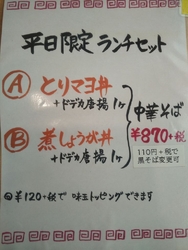 平日限定 ランチセット
Ⓐ とりマヨ丼
+ドデカ唐揚1ヶ
Ⓑ 煮しょうが丼
+ドデカ唐揚1ヶ
中華そば
¥870+税
110円+税で
黒そば変更可
◎¥120+税で 味玉トッピングできます